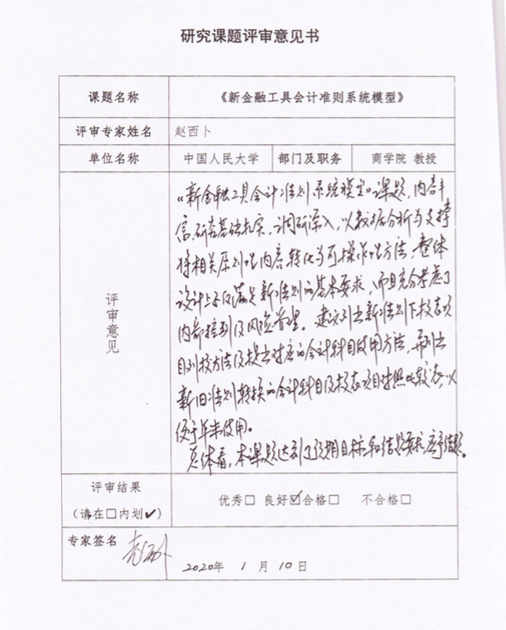 研究课题评审意见书
课题名称 《新金融工具会计准则系统模型》
评审专家姓名 赵西卜
单位名称 中国人民大学 部门及职务 商学院 教授
评审意见
《新金融工具会计准则系统模型》课题，内容丰
富，研究基础扎实，调研深入，以数据分析为支撑
将相关原则性内容转化为可操作性方法，整体
设计上不仅满足新准则的基本要求，而且充分考虑了
内部控制及风险管理。建议列出新准则下报表项
目列报方法及提出对应的会计科目使用方法，再列出
新旧准则转换的会计科目及报表项目对照比较表，以
便于年末使用。
总体看，本课题达到了预期目标和结题要求，应予结题。
评审结果
（请在□内划✔） 优秀□ 良好☑ 合格□ 不合格□
专家签名
2020年 1 月 10 日